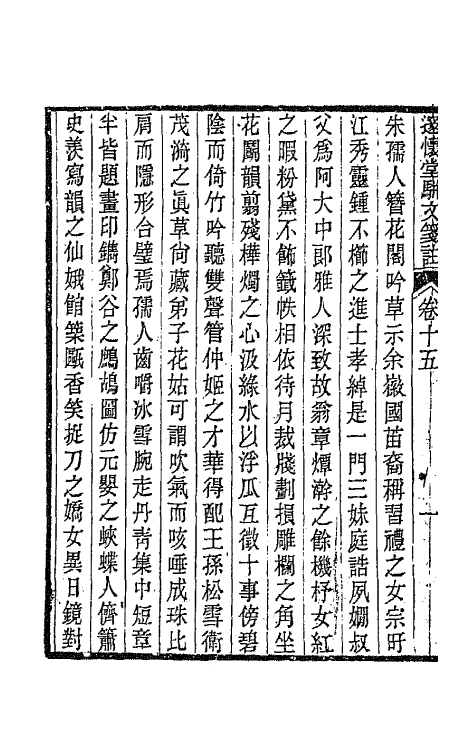 邃懷堂駢文箋註 卷十五 一
朱孺人簪花閣吟草示余嶽國苗裔稱習禮之女宗旴
江秀靈鍾不櫛之進士孝綽是一門三妹庭誥夙嫺叔
父爲阿大中郎雅人深致故翁章燂瀚之餘機杼女紅
之暇粉黛不飾籤帙相依待月裁牋劃損雕欄之角坐
花鬬韻翦殘樺燭之心汲綠水以浮瓜互徵十事傍碧
陰而倚竹吟聽雙聲管仲姬之才華得配王孫松雪衛
茂漪之眞草尙藏弟子花姑可謂吹氣而咳唾成珠比
肩而隱形台壁焉孺人齒嚼冰雪腕走丹靑集中短章
半皆題畫印鐫鄭谷之鷓鴣圖仿元嬰之蛺蝶人儕簫
史羨寫韻之仙娥館築甌香笑捉刀之嬌女異日鏡對